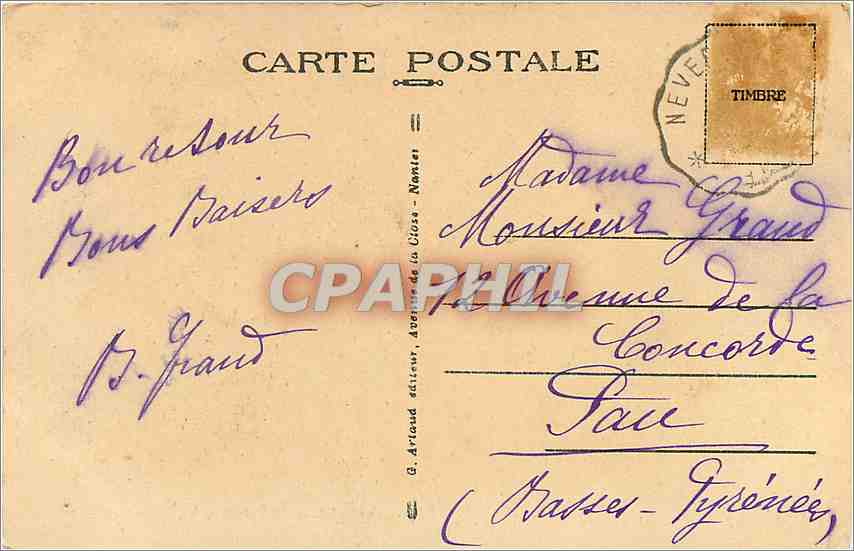 CARTE POSTALE
NEVE
TIMBRE
Bon retour
Bons Baisers
B. Grand
G. Artaud éditeur, Avenue de la Close - Nantes
Madame
Monsieur Grand
12 Avenue de la
Concorde
Pau
(Basses-Pyrénées)
CPAPHIL